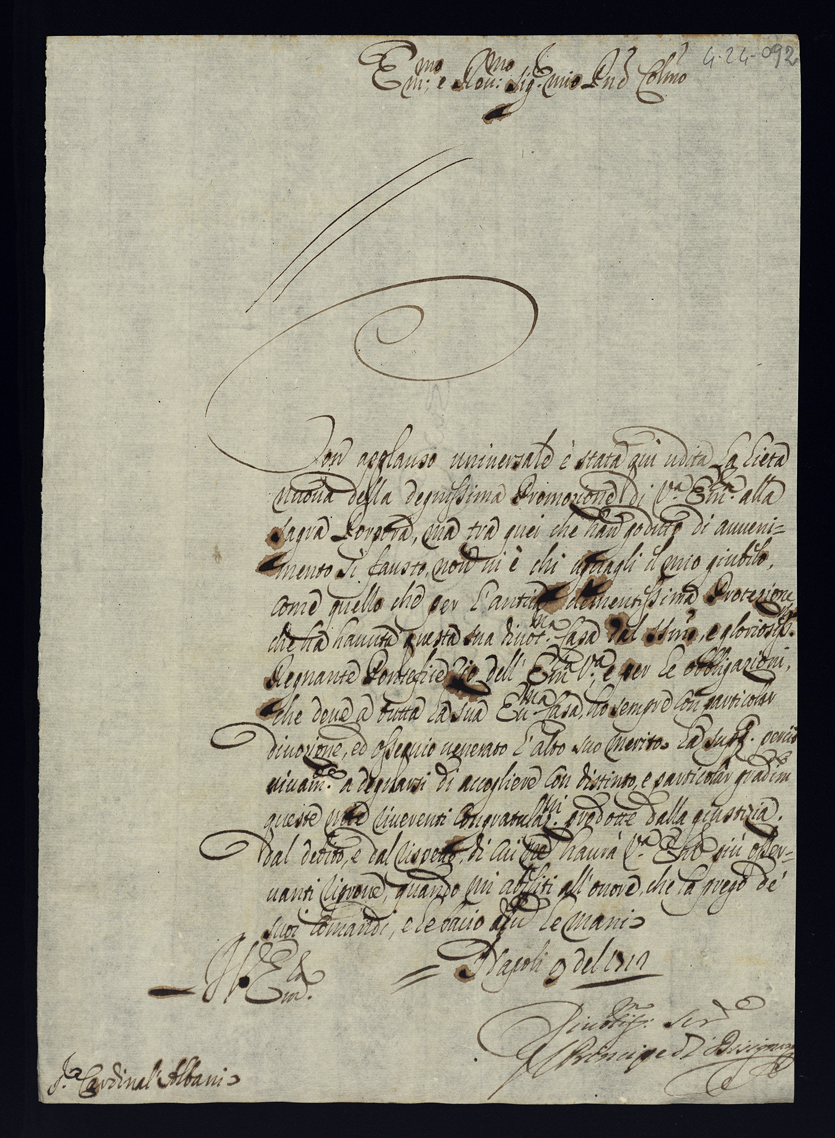 4-24-092
Em:mo e Rev:mo Sig.r mio P̃ne Col̃mo
Con applauso universale è stata qui udita la lieta
nuova della degnissima Promozione di V.ra Em.za alla
Sagra Porpora, ma tra quei che han goduto di avveni=
mento sì fausto, non vi è chi agguagli il mio giubilo,
come quello che per l'antica clementissima Protezione
che ha havuta questa sua divot.ma Casa dal e gloriosis.
Regnante Pontefice Zio dell' Em.za V.ra e per le obbligazioni,
che deve a tutta la sua Ecc.ma Casa, ho sempre con particolar
divozione, ed ossequio venerato l'alto suo merito. La supp.co perciò
vivam.te a degnarsi di accogliere con distinto, e particolar gradim
queste mie riverenti congratulaz.ni prodotte dalla giustizia.
dal debito, e dal rispetto, di cui ne havrà V.ra Em.za più osser=
vanti riprove, quando mi abiliti all'onore, che la prego de'
suoi comandi, e le bacio le mani
Di V. Em.za
Napoli 9 del 1712
Divotiss.mo Ser.re
Il Principe di Bisignano
S.r Cardinal' Albani